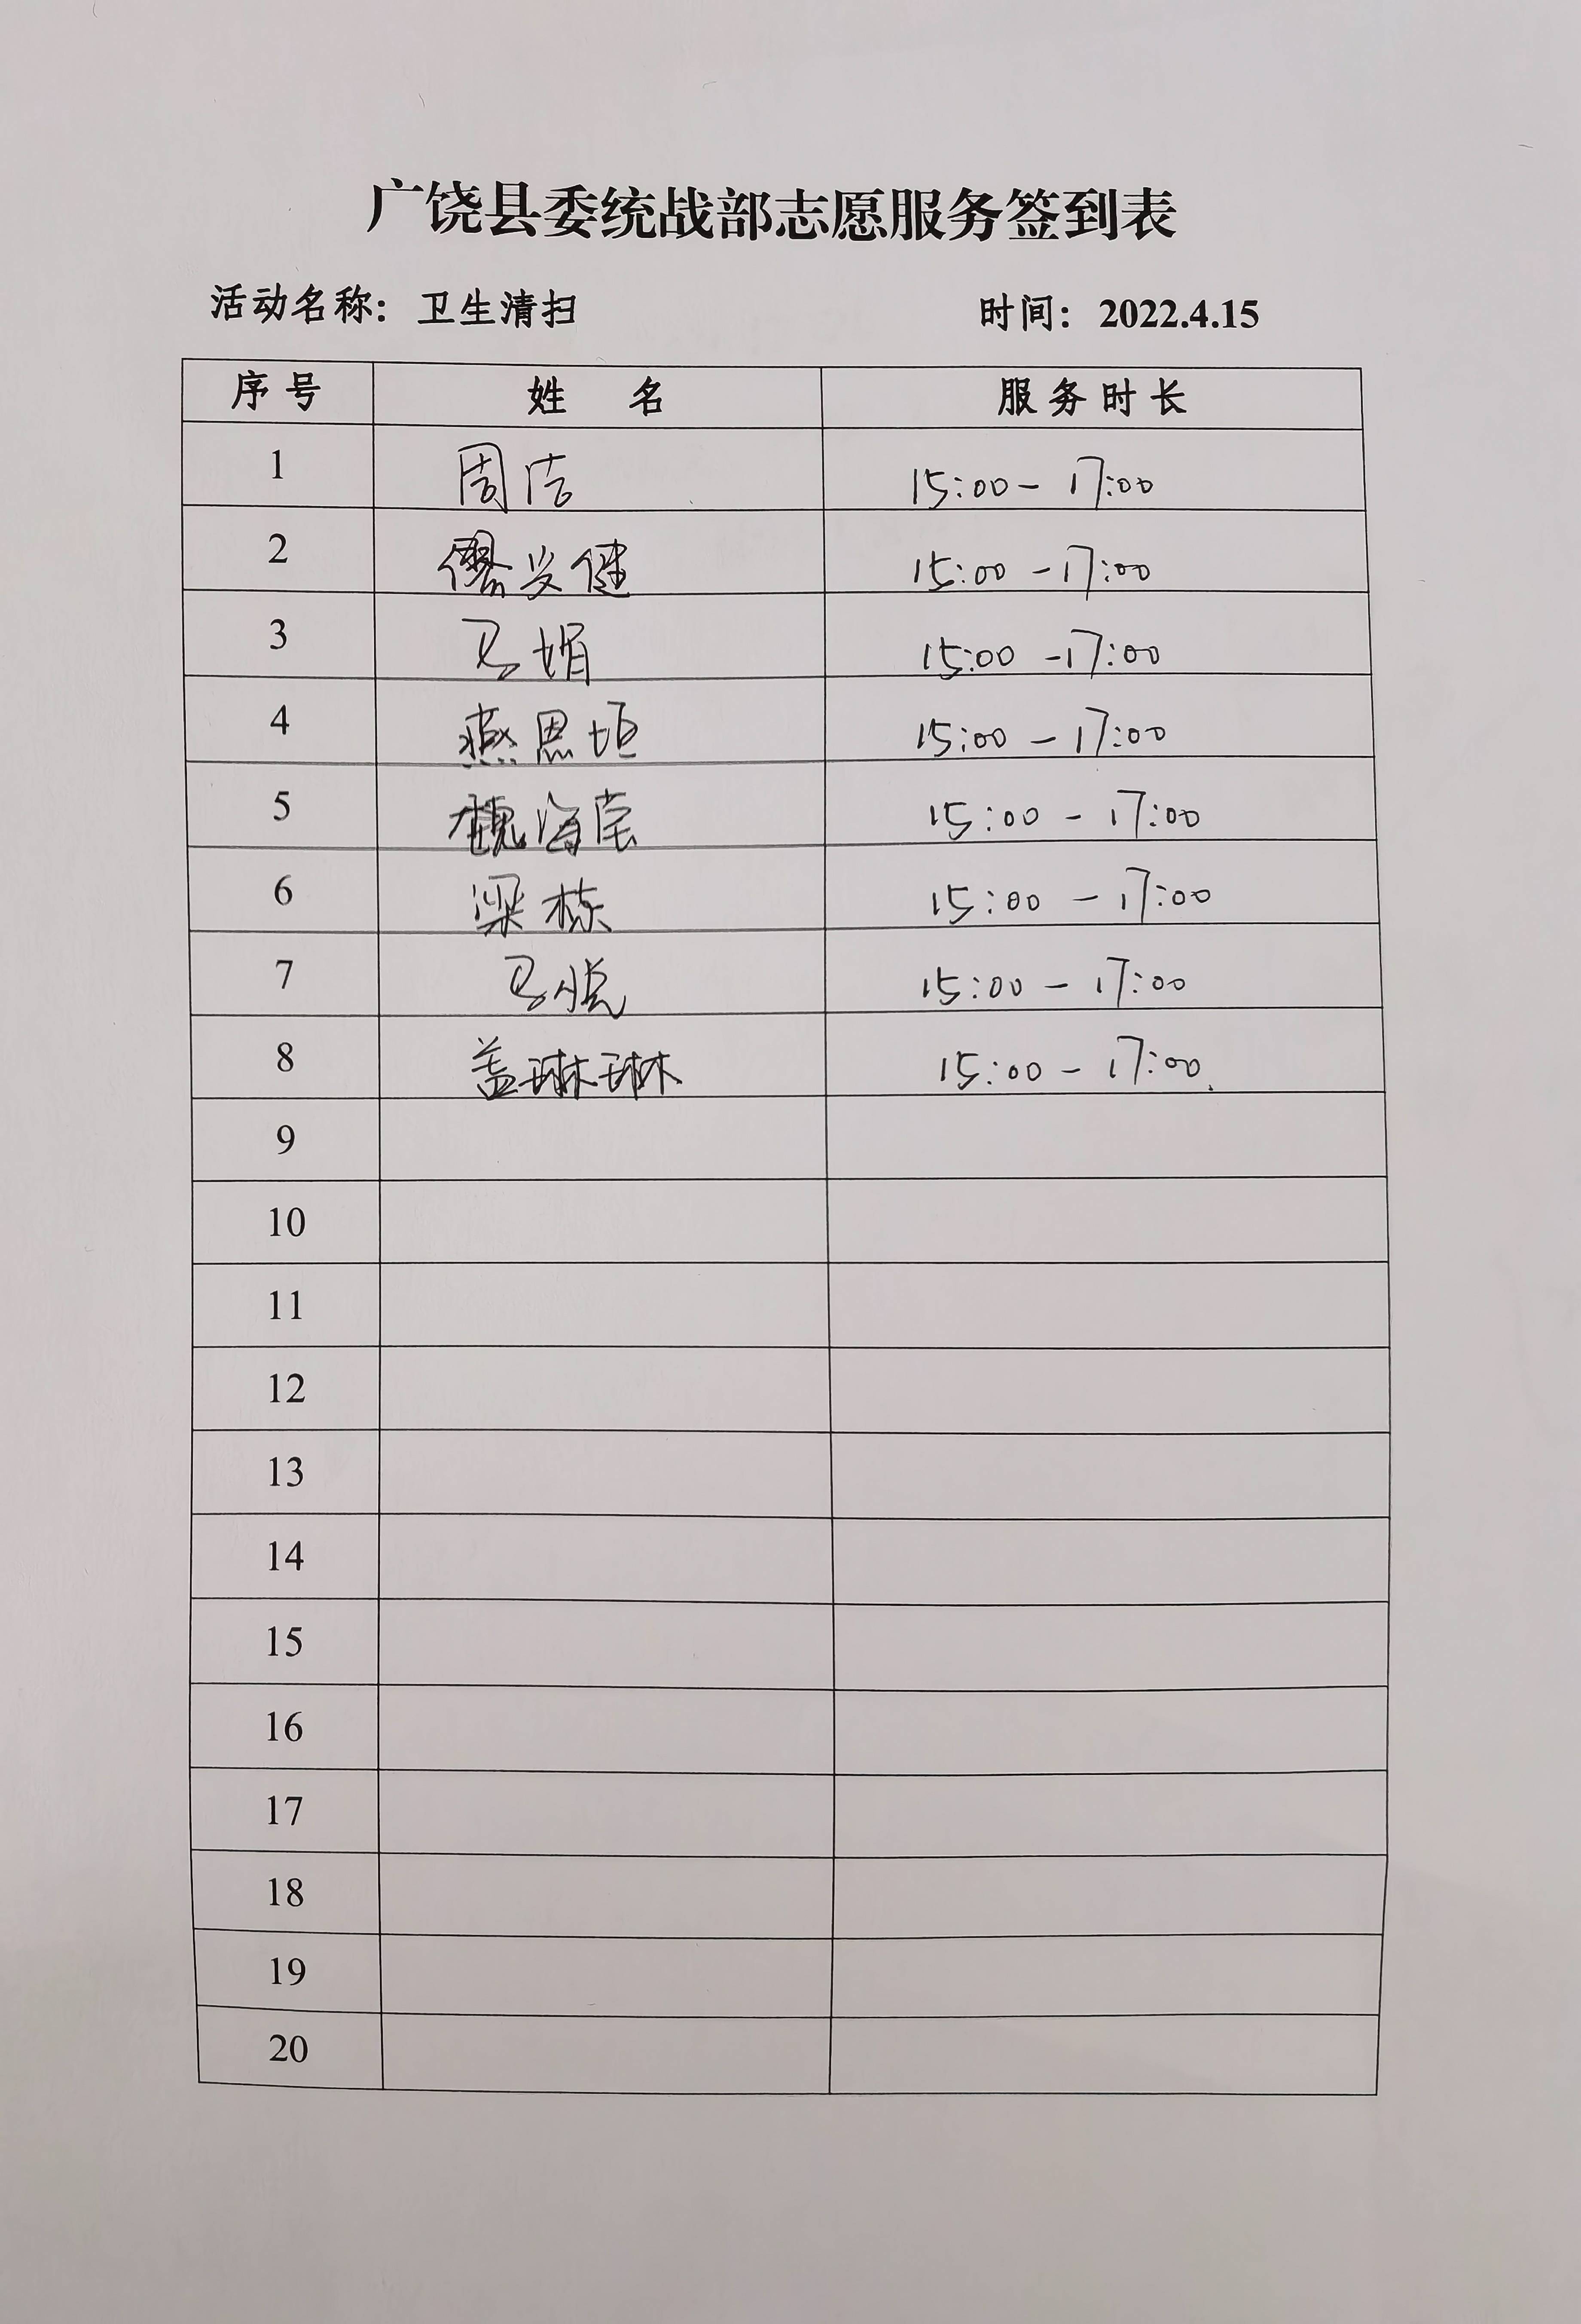 广饶县委统战部志愿服务签到表
活动名称：卫生清扫 时间：2022.4.15
序号 姓 名 服务时长
1 周洁 15:00-17:00
2 15:00-17:00
3 马娟 15:00-17:00
4 燕恩垣 15:00-17:00
5 魏海荣 15:00-17:00
6 梁栋 15:00-17:00
7 马悦 15:00-17:00
8 盖琳琳 15:00-17:00
9
10
11
12
13
14
15
16
17
18
19
20